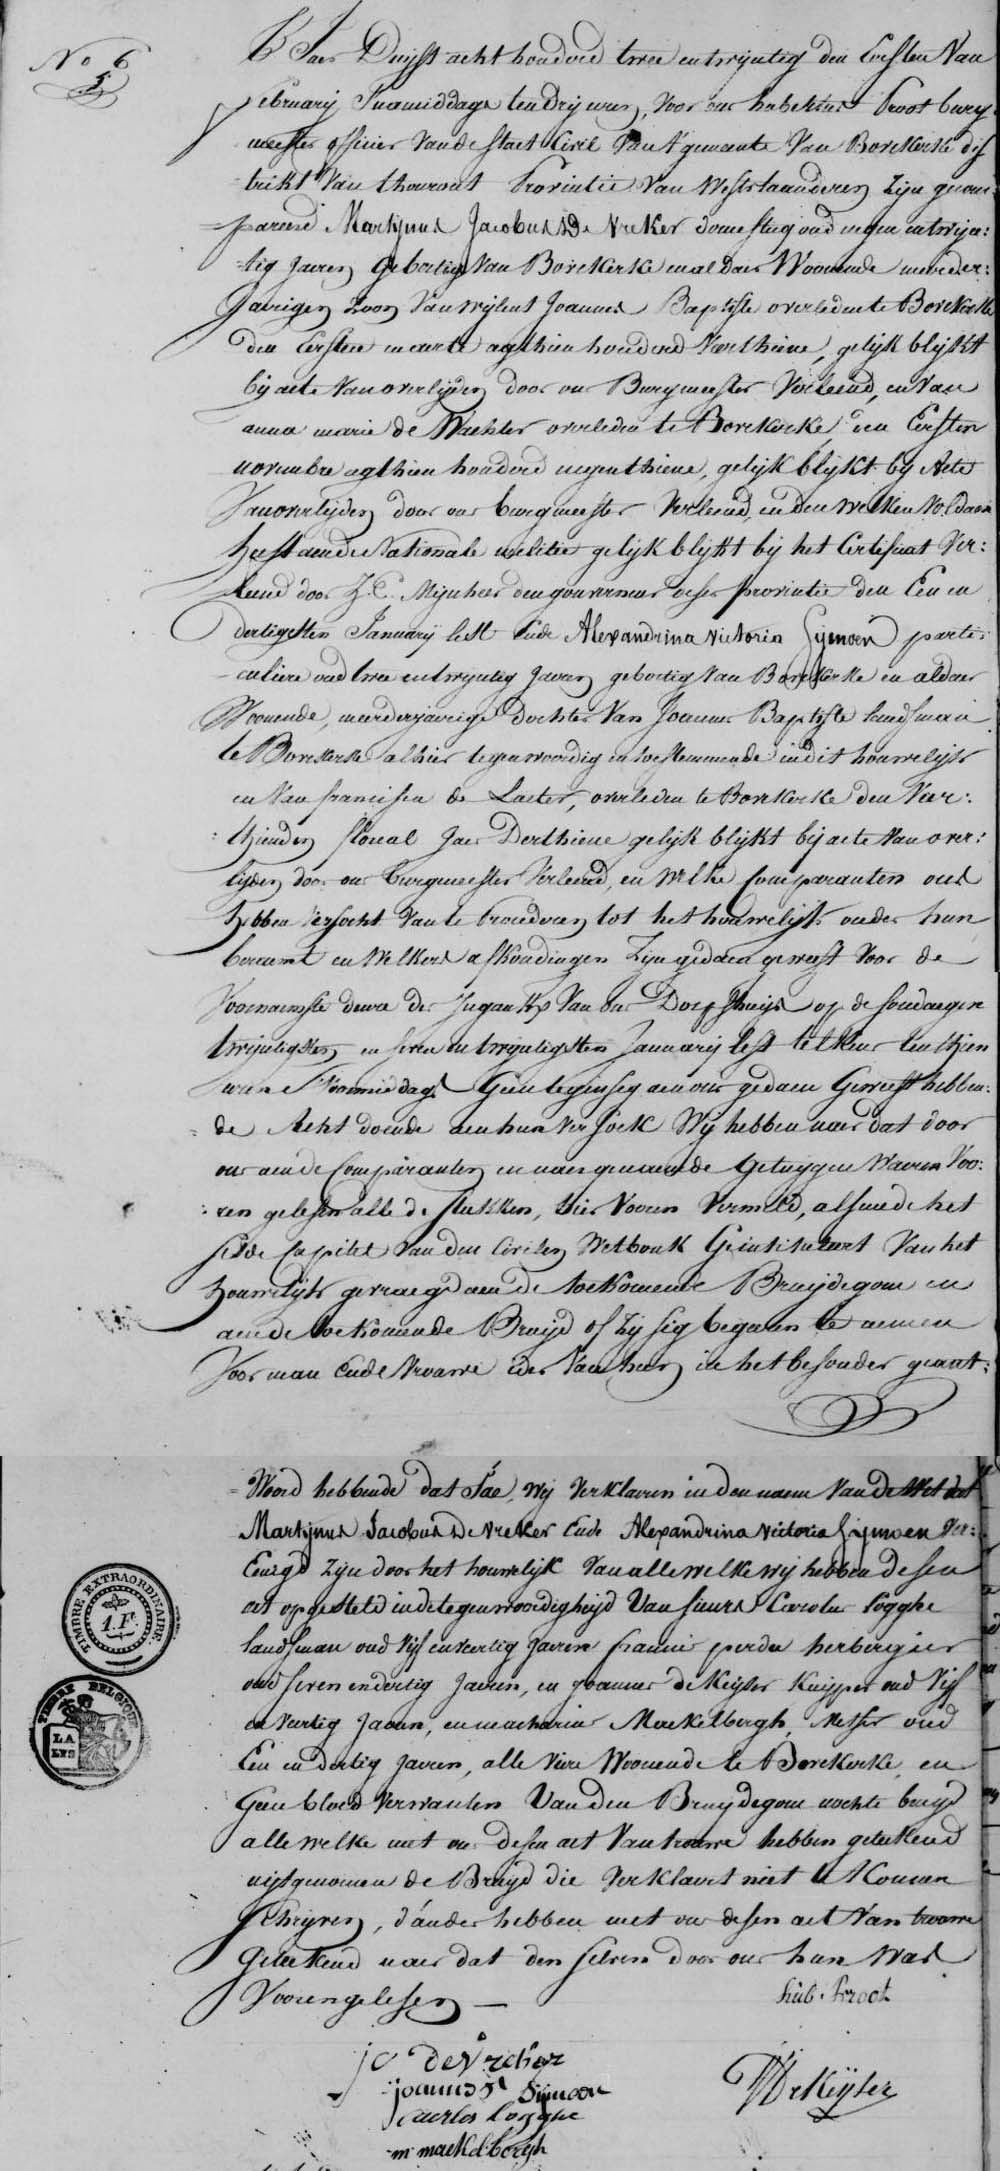 No 6
5
't Jaer Duijst acht hondert twee en twijntig den Eersten Van
february S'namiddags ten drij uren, Voor ons hubertus Proot burg
meester officier Van de Staet Civil Van 't gemeente Van Bovekerke dis
trikt Van thourout Provintie Van Westvlaanderen Zijn gecom:
=pareerd Martijnus Jacobus De Vreker domestieq oud negen en twijn:
tig Jaeren Gebortig Van Bovekerke en al daer Woonende meerder:
Jaerigen Zoon Van wijlent Joannes Baptiste overleden te Bovekerke
den Eersten meerte agthien hondered Veerthiene, gelijk blijkt
bij acte Van overlijden door ons Burgmeester Verleend, en Van
anna marie de Wachter overleden te Bovekerke den Eersten
november agthien hondered negenthiene, gelijk blijkt bij Acte
Van overlijden door ons burgmeester Verleend, en den welken Voldaen
heeft aen de Nationale militie gelijk blijkt bij het Certificat Ver:
leend door Z.E. Mijnheer den gouverneur deser provintie den Een en
dertigsten January lest Ende Alexandrina Victoria Sijmoen parti
culiere oud twee en twijntig Jaeren gebortig Van Bovekerke en aldaer
Woonende, meerderjaerige dochter Van Joannes Baptiste landsman
te Bovekerke alhier tegenwoordig en toestemmende in dit houwelijk
en Van francisca de Laeter, overleden te Bovekerke den Veer:
:thienden floreal Jaer Derthiene gelijk blijkt bij acte Van over:
lijden door ons burgmeester Verleend, en Welke Comparanten ons
hebben Versocht Van te procederen tot het houwelijk onder hun
beraemt en Welkers afkondingen Zijn gedaen geweest Voor de
Voornaemste deure der Ingank Van ons Dorpshuijs op de sondaegen
twijntigsten en seven en twijntigsten January lest telkens ten thien
uren S'voormiddags Geen tegenseg aen ons gedaen Geweest hebben:
de Recht doende aen hun versoek Wy hebben naer dat door
ons aen de Comparanten en naergenaemde Getuygen Waeren Voo:
:ren gelesen alle de stukken, hier Vooren Vermeld, alsmede het
sesde Capitel Van den Civilen Wetbouk Geintituleert Van het
houwelijk gevraegd aen de toekomende Bruijdegom en
aen de toekomende Bruijd of Zij sig begaeren te nemen
Voor man Ende Vrouwe ider Van hun in het besonder geant:
=Woord hebbende dat Jae, Wij Verklaeren in den naem Van de Wet dat
Martijnus Jacobus De Vreker Ende Alexandrina Victoria Sijmoen Ver:
Eenigd Zijn door het houwelijk Van alle welke wij hebben desen
act opgesteld in de tegenwoordigheijd Van sieurs Carolus Logghe
landsman oud Vijf en Veertig Jaeren francis perdu herbergier
oud seven en dertig Jaeren, en Joannes de Keijser Kuijper oud Vijf
en Veertig Jaeren, en macharius Maekelbergh Metser oud
Een en dertig Jaeren, alle Viere Woonende te Bovekerke, en
Geen bloed Verwanten Van den Bruijdegom nochte bruijd
alle welke met ons desen act Van trouwe hebben geteekend
uijtgenomen de Bruijd die Verklaert niet te Konnen
schrijven, d'ander hebben met ons desen act Van trouwe
Geteekend naer dat den selven door ons hun Was
Voorengelesen
hub. Proot
TIMBRE EXTRAORDINAIRE.
1.F.
TIMBRE BELGIQUE
LA
LYS
JC Devreker
joannes Bt Sijmoen
Carlos Logghe
m maekelbergh
J D Keijser